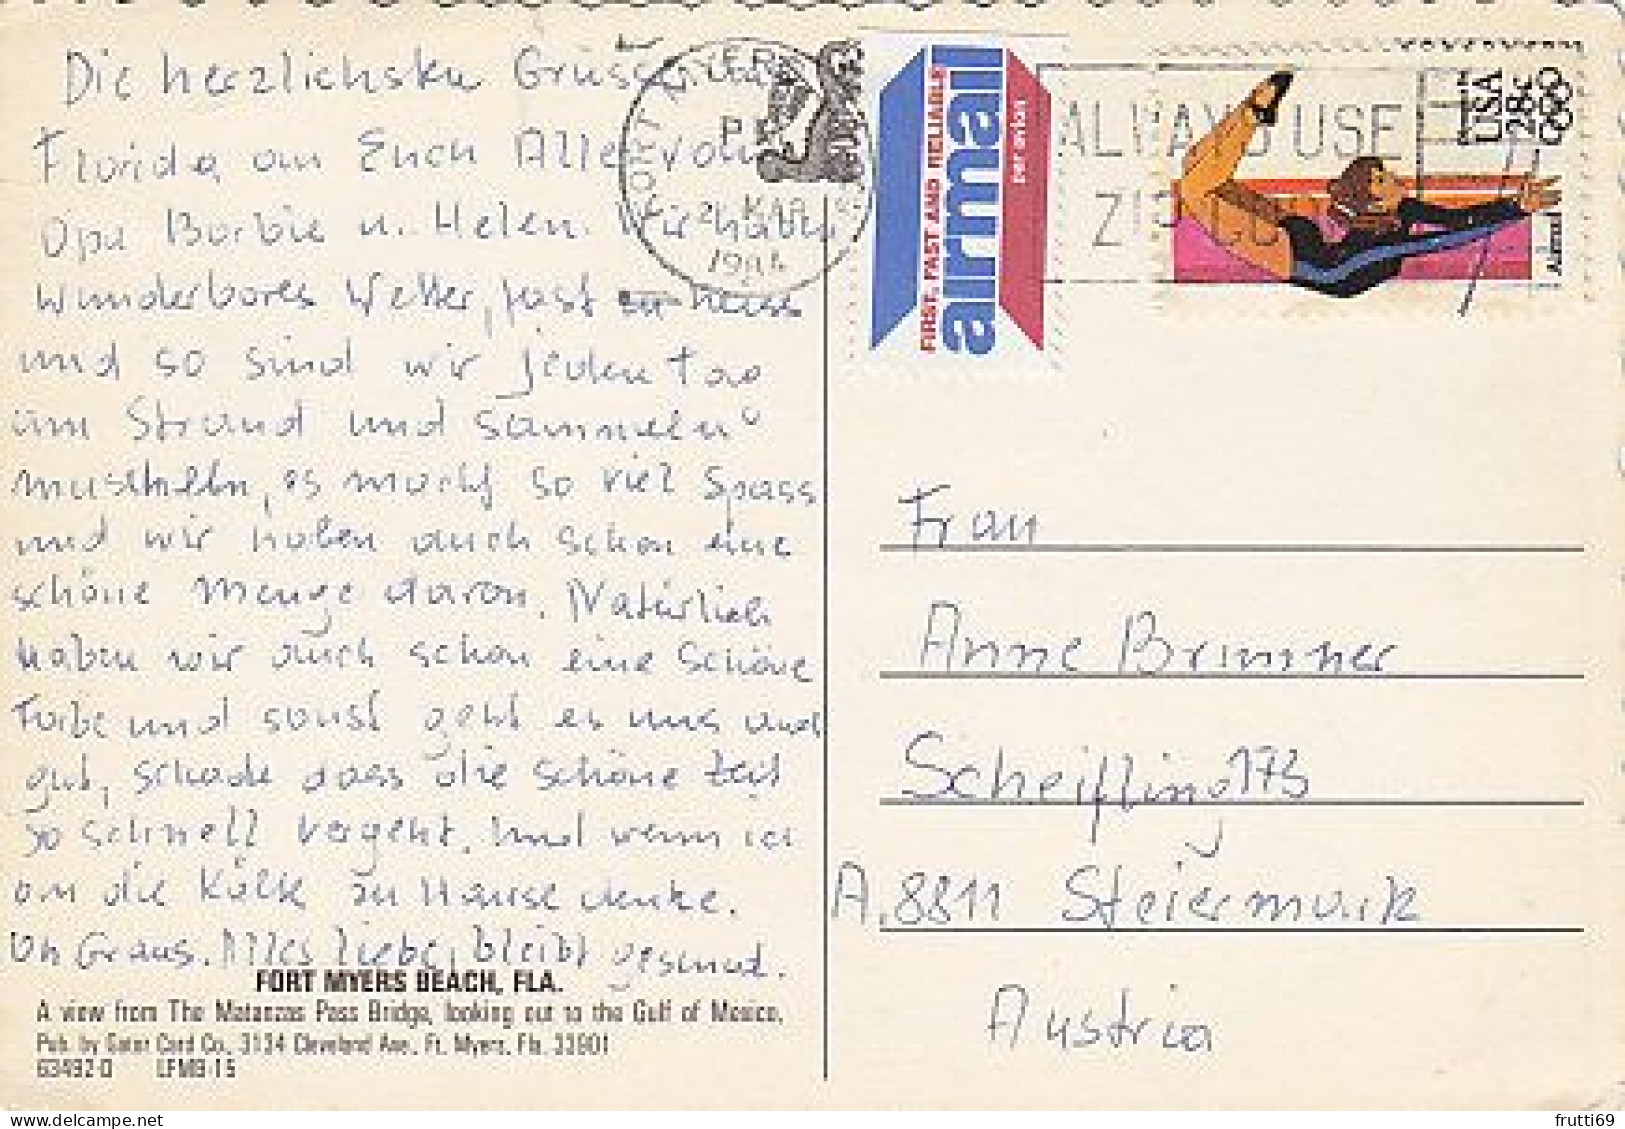 Die herzlichsten Grüsse aus
Florida an Euch Alle von
Opa Barbie u. Helen. Wir haben
wunderbares Wetter, fast zu heiss
und so sind wir jeden Tag
am Strand und sammeln
muscheln, es macht so viel Spass
und wir haben auch schon eine
schöne Menge davon. Natürlich
haben wir auch schon eine schöne
Farbe und sonst geht es uns auch
gut, schade dass die schöne Zeit
so schnell vergeht. Und wenn ich
an die Kälte zu Hause denke.
Oh Graus. Alles Liebe, bleibt gesund.
FORT MYERS BEACH, FLA.
A view from The Matanzas Pass Bridge, looking out to the Gulf of Mexico.
Pub. by Gator Card Co., 3134 Cleveland Ave., Ft. Myers, Fla. 33901
63492-D LFMB-15
FORT MYERS
MAR
1984
FIRST, FAST AND RELIABLE
airmail
par avion
ALWAYS USE
ZIP CODE
USA
28c
Airmail
Frau
Anne Brunner
Scheifling 173
A. 8811 Steiermark
Austria
frutti69